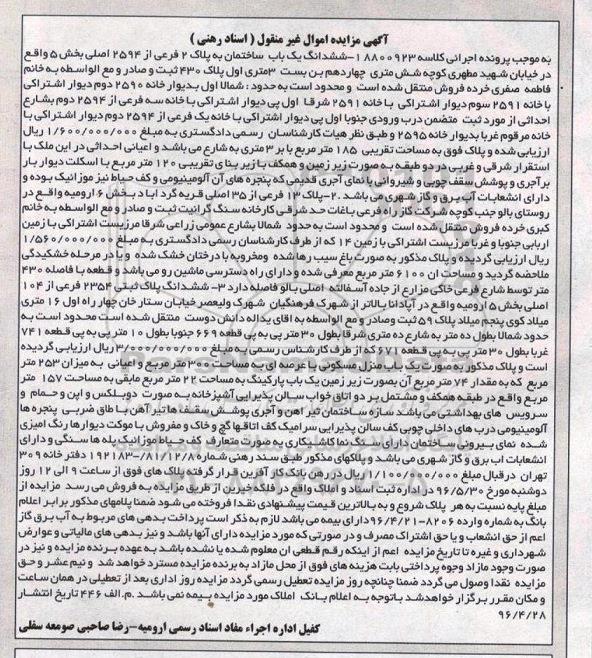 آگهی مزایده اموال غیر منقول ( اسناد رهنی )
به موجب پرونده اجرائی کلاسه ۱۸۸۰۰۹۲۳-ششدانگ یک باب ساختمان به پلاک ۲ فرعی از ۲۵۹۴ اصلی بخش ۵ واقع
در خیابان شهید مطهری کوچه شش متری چهاردهم بن بست ۳متری اول پلاک ۴۳۰ ثبت و صادر و مع الواسطه به خانم
فاطمه صفری خرده فروش منتقل شده است و محدود است به حدود : شمالا اول بدیوار خانه ۲۵۹۰ دوم دیوار اشتراکی
با خانه ۲۵۹۱ سوم دیوار اشتراکی با خانه ۲۵۹۱ شرقا اول پی دیوار اشتراکی با خانه سه فرعی از ۲۵۹۴ دوم بشارع
احداثی از مورد ثبت متضمن درب ورودی جنوبا اول پی دیوار اشتراکی با خانه یک فرعی از ۲۵۹۴ دوم دیوار اشتراکی با
خانه مرقوم غربا بدیوار خانه ۲۵۹۵ و طبق نظر هیات کارشناسان رسمی دادگستری به مبلغ ۱/۶۰۰/۰۰۰/۰۰۰ ریال
ارزیابی شده و پلاک فوق به مساحت تقریبی ۱۸۵ متر مربع با بر ۳ متری به شارع می باشد و اعیانی احداثی در این ملک با
استقرار شرقی و غربی در دو طبقه به صورت زیر زمین و همکف با زیر بنای تقریبی ۱۲۰ متر مربع با اسکلت دیوار بار
بر آجری و پوشش سقف چوبی و شیروانی با نمای آجری قدیمی که پنجره های آن آلومینیومی و کف حیاط نیز موزائیک بوده و
دارای انشعابات آب برق و گاز شهری می باشد .۲-پلاک ۱۳ فرعی از ۳۵ اصلی قریه گرد اباد بخش ۶ ارومیه واقع در
روستای بالو جنب کوچه شرکت گاز راه فرعی باغات حد شرقی کارخانه سنگ گرانیت ثبت و صادر و مع الواسطه به خانم
کبری خرده فروش منتقل شده است و محدود است به حدود شمالا بشارع عمومی زراعی شرقا مرزیست اشتراکی با زمین
اربابی جنوبا و غربا مرزیست اشتراکی با زمین ۱۴ که از طرف کارشناسان رسمی دادگستری به مبلغ ۱/۵۶۰/۰۰۰/۰۰۰
ریال ارزیابی گردیده و پلاک مذکور به صورت باغ سیب رها شده ومخروبه با درختان خشک شده و یا در مرحله خشکیدگی
ملاحضه گردید و مساحت ان ۶۱۰۰ متر مربع معرفی شده و دارای راه دسترسی ماشین رو می باشد و قطعه با فاصله ۴۳۰
متر توسط شارع فرعی خاکی مزارع از جاده آسفالته اصلی بالو فاصله دارد ۳- ششدانگ پلاک ثبتی ۲۳۵۴ فرعی از ۱۰۴
اصلی بخش ۵ ارومیه واقع در آپادانا بالاتر از شهرک فرهنگیان شهرک ولیعصر خیابان ستار خان چهار راه اول ۱۶ متری
میلاد کوی پنجم میلاد پلاک ۵۹ ثبت وصادر و مع الواسطه به اقای یداله دانش دوست منتقل شده است محدود است به
حدود شمالا بطول ده متر به شارع ده متری شرقا بطول ۳۰ متر پی به پی قطعه ۶۶۹ جنوبا بطول ۱۰ متر پی به پی قطعه ۷۴۱
غربا بطول ۳۰ متر پی به پی قطعه ۶۷۱ که از طرف کارشناس رسمی به مبلغ ۳/۰۰۰/۰۰۰/۰۰۰ ریال ارزیابی گردیده
است و پلاک مذکور به صورت یک باب منزل مسکونی با عرصه ای به مساحت ۳۰۰ متر مربع و اعیانی به میزان ۲۵۳ متر
مربع که به مقدار ۷۴ متر مربع آن بصورت زیر زمین یک باب پارکینگ به مساحت ۲۲ متر مربع مابقی به مساحت ۱۵۷ متر
مربع واقع در طبقه همکف و مشتمل بر دو اتاق خواب سالن پذیرایی آشپزخانه به صورت دوبلکس و اپن و حمام و
سرویس های بهداشتی می باشد سازه ساختمان تیر اهن و آجری پوشش سقف ها تیر آهن با طاق ضربی پنجره ها
آلومینیومی درب های داخلی چوبی کف سالن پذیرایی سرامیک کف اتاقها گچ و خاک و مفروش با موکت دیوارها رنگ امیزی
شده نمای بیرونی ساختمان دارای سنگ نما کاشیکاری به صورت متعارف کف حیاط موزائیک پله ها سنگی و دارای
انشعابات اب برق و گاز شهری می باشد و پلاکهای مذکور طبق سند رهنی شماره ۸۱/۱۲/۸-۱۹۲۱۸۳ دفتر خانه ۳۰۹
تهران درقبال مبلغ ۱/۱۰۰/۰۰۰/۰۰۰ ریال در رهن بانک کار آفرین قرار گرفته پلاک های فوق از ساعت ۹ الی ۱۲ روز
دوشنبه مورخ ۹۶/۵/۳۰ در اداره ثبت اسناد و املاک واقع در فلکه خیرین از طریق مزایده به فروش می رسد مزایده از
مبلغ پایه نسبت به هر پلاک شروع و به بالاترین قیمت پیشنهادی نقدا فروخته می شود ضمنا پلامهای مذکور برابر اعلام
بانگ به شماره وارده ۸۲۰۶-۹۶/۴/۲۱دارای بیمه می باشد لازم به ذکر است پرداخت بدهی های مربوط به آب برق گاز
اعم از حق انشعاب و یا حق اشتراک مصرف و در صورتی که مورد مزایده دارای آنها باشد و نیز بدهی های مالیاتی و عوارض
شهرداری و غیره تا تاریخ مزایده اعم از اینکه رقم قطعی ان معلوم شده یا نشده باشد به عهده برنده مزایده و نیز در
صورت وجود مازاد وجوه پرداختی بابت هزینه های فوق از محل مازاد به برنده مزایده مسترد خواهد شد و نیم عشر و حق
مزایده نقدا وصول می گردد ضمنا چنانچه روز مزایده تعطیل رسمی گردد مزایده روز اداری بعد از تعطیلی در همان ساعت
و مکان مقرر برگزار خواهد شد با توجه به اعلام بانک املاک مورد مزایده بیمه نمی باشد .م.الف ۴۴۶ تاریخ انتشار
۹۶/۴/۲۸
کفیل اداره اجراء مفاد اسناد رسمی ارومیه-رضا صاحبی صومعه سفلی